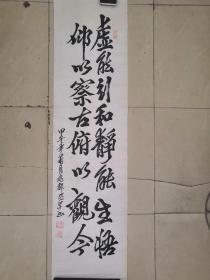 虚能引和静能生悟
仰以察古俯以观今
甲午年